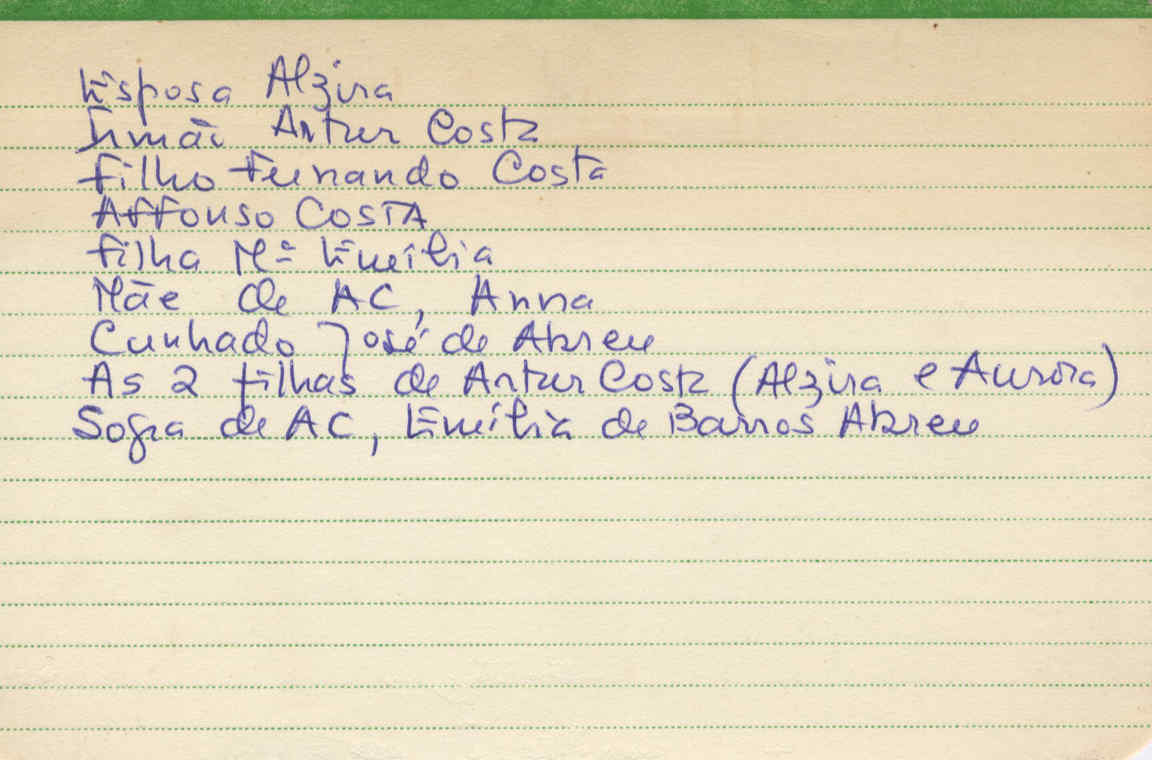 Esposa Alzira
Irmão Artur Costa
Filho Fernando Costa
Affonso COSTA
Filha Mª Emília
Mãe de AC, Anna
Cunhado José de Abreu
As 2 filhas de Artur Costa (Alzira e Aurora)
Sogra de AC, Emília de Barros Abreu